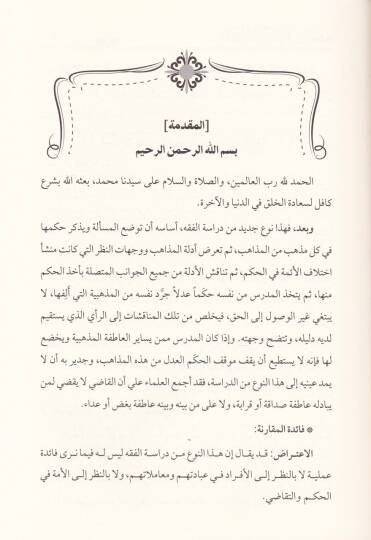 [المقدمة]
بسم الله الرحمن الرحيم
الحمد لله رب العالمين، والصلاة والسلام على سيدنا محمد، بعثه الله بشرع
كافل لسعادة الخلق في الدنيا والآخرة.
وبعد، فهذا نوع جديد من دراسة الفقه، أساسه أن توضع المسألة ويذكر حكمها
في كل مذهب من المذاهب، ثم تعرض أدلة المذاهب ووجهات النظر التي كانت منشأ
اختلاف الأئمة في الحكم، ثم تناقش الأدلة من جميع الجوانب المتصلة بأخذ الحكم
منها، ثم يتخذ المدرس من نفسه حكَماً عدلاً جرَّد نفسه من المذهبية التي ألِفها، لا
يبتغي غير الوصول إلى الحق، فيخلص من تلك المناقشات إلى الرأي الذي يستقيم
لديه دليله، وتتضح وجهته. وإذا كان المدرس ممن يساير العاطفة المذهبية ويخضع
لها فإنه لا يستطيع أن يقف موقف الحكَم العدل من هذه المذاهب، وجدير به أن لا
يمد عينيه إلى هذا النوع من الدراسة، فقد أجمع العلماء علي أن القاضي لا يقضي لمن
يبادله عاطفة صداقة أو قرابة، ولا على من بينه وبينه عاطفة بغض أو عداء.
* فائدة المقارنة:
الاعتراض: قد يقال إن هذا النوع من دراسة الفقه ليس له فيما نرى فائدة
عملية لا بالنظر إلى الأفراد في عبادتهم ومعاملاتهم، ولا بالنظر إلى الأمة في
الحكم والتقاضي.